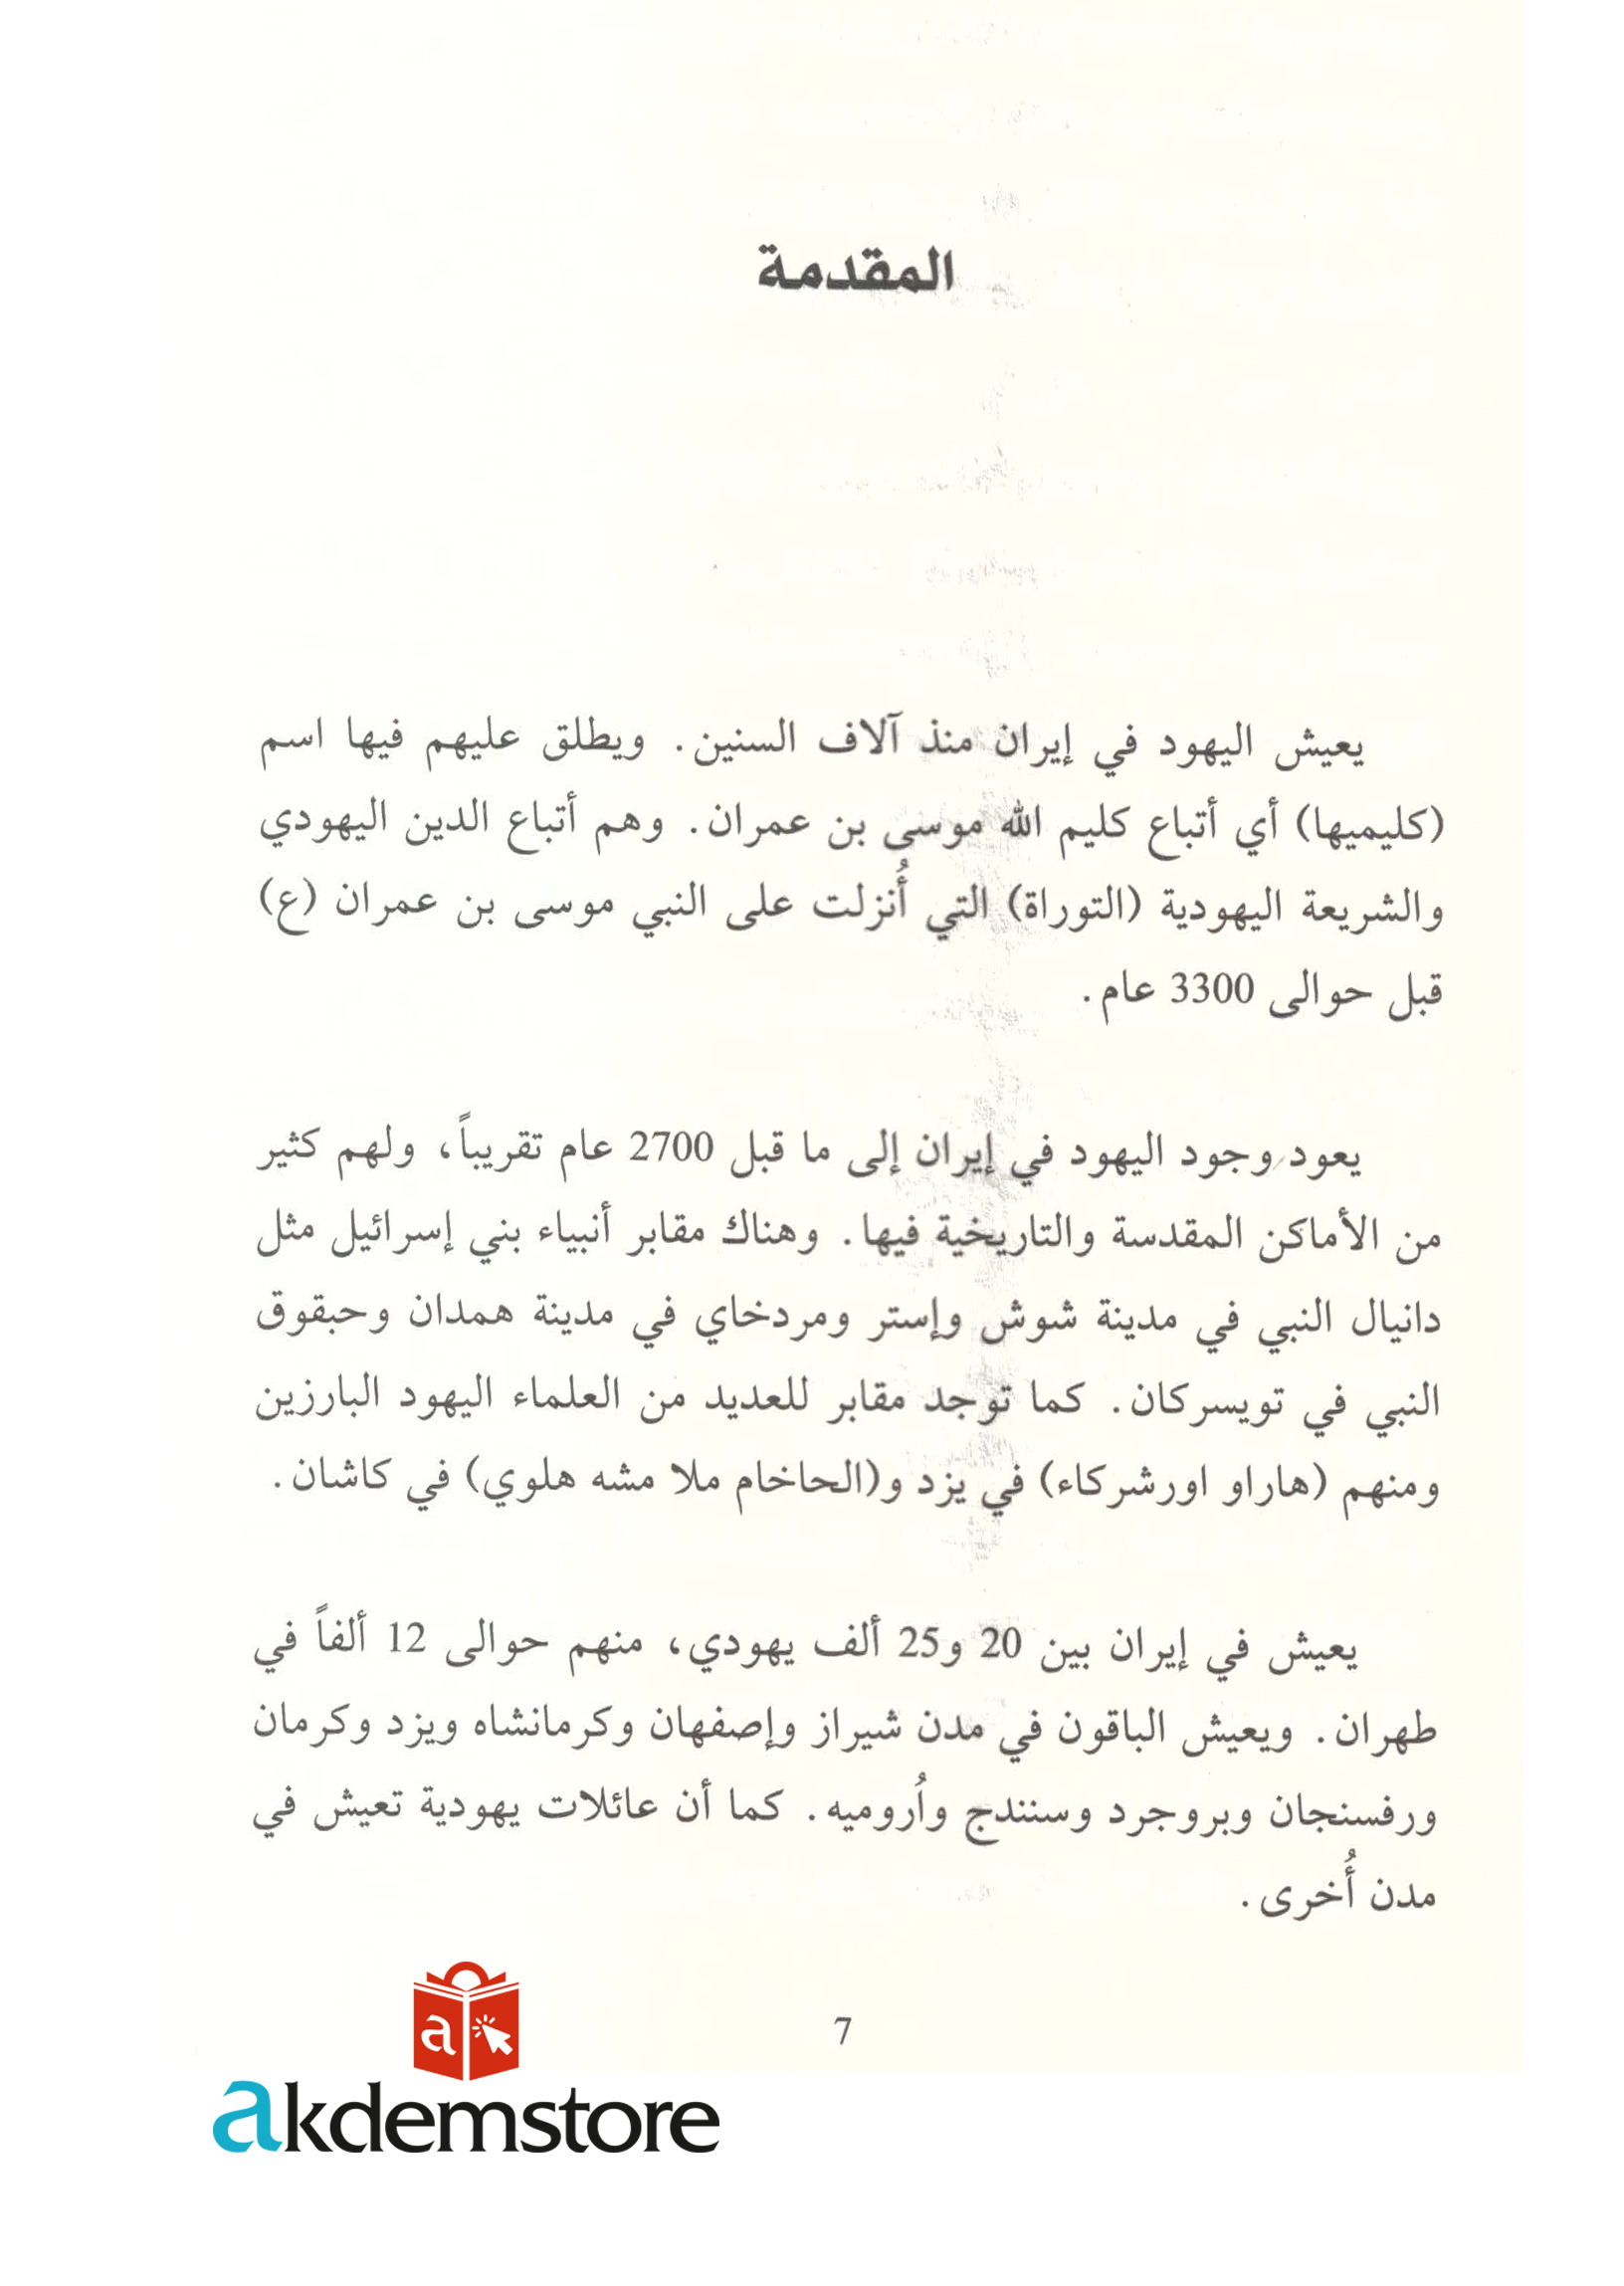 المقدمة
يعيش اليهود في إيران منذ آلاف السنين. ويطلق عليهم فيها اسم
(كليميها) أي أتباع كليم الله موسى بن عمران. وهم أتباع الدين اليهودي
والشريعة اليهودية (التوراة) التي أُنزلت على النبي موسى بن عمران (ع)
قبل حوالى 3300 عام.
يعود وجود اليهود في إيران إلى ما قبل 2700 عام تقريباً، ولهم كثير
من الأماكن المقدسة والتاريخية فيها. وهناك مقابر أنبياء بني إسرائيل مثل
دانيال النبي في مدينة شوش وإستر ومردخاي في مدينة همدان وحبقوق
النبي في تويسركان. كما توجد مقابر للعديد من العلماء اليهود البارزين
ومنهم (هاراو اورشركاء) في يزد و(الحاخام ملا مشه هلوي) في كاشان.
يعيش في إيران بين 20 و25 ألف يهودي، منهم حوالى 12 ألفاً في
طهران. ويعيش الباقون في مدن شيراز وإصفهان وكرمانشاه ويزد وكرمان
ورفسنجان وبروجرد وسنندج واُروميه. كما أن عائلات يهودية تعيش في
مدن أُخرى.
7
a
akdemstore